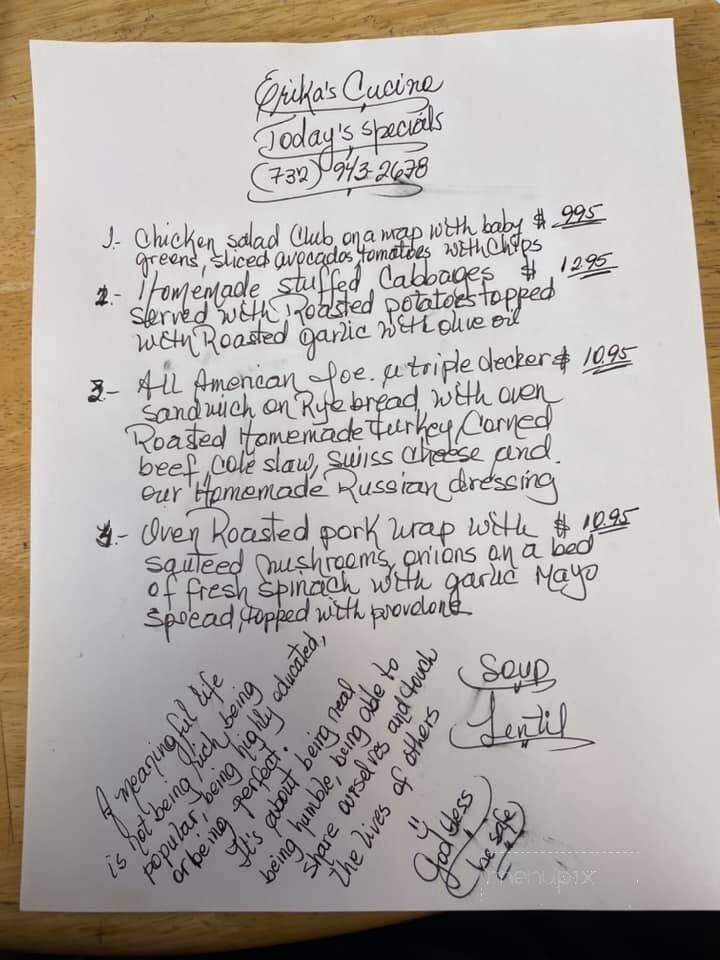 Erika's Cucina
Today's specials
(732) 943-2678
1.- Chicken salad Club on a wrap with baby $ 995
greens, sliced avocados, tomatoes with Chips
2.- Homemade stuffed Cabbages $ 12.95
served with Roasted potatoes topped
with Roasted garlic with olive oil
3.- All American Joe. a triple decker $ 10.95
sandwich on Rye bread with oven
Roasted Homemade turkey, Corned
beef, cole slaw, swiss cheese and
our Homemade Russian dressing
4.- Oven Roasted pork wrap with $ 10.95
sauteed mushrooms, onions on a bed
of fresh spinach with garlic Mayo
spread, topped with provolone
Soup
Lentil
A meaningful life
is not being rich, being
popular, being highly educated,
or being perfect.
It's about being real
being humble, being able to
share ourselves and touch
the lives of others
"God bless
be safe
menupix